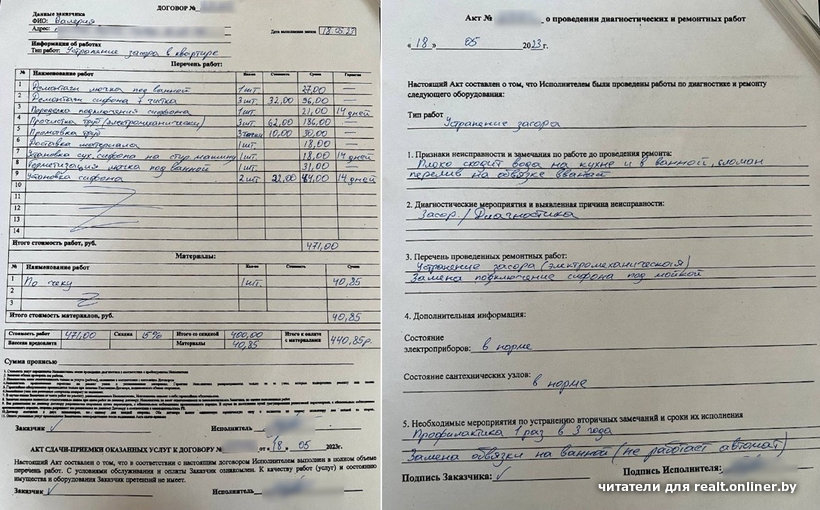 ДОГОВОР №
Данные заказчика
ФИО: Валерия
Адрес:
Дата выполнения заказа 18.05.23
Информация об работах
Тип работ: Устранение засора в квартире
Перечень работ:
№ Наименование работ Кол-во Стоимость Сумма Гарантия
1 Демонтаж лючка под ванной 1 шт. 27,00 —
2 Демонтаж сифона 3 шт. 32,00 96,00 —
3 Переделка подключения сифона 1 шт. 21,00 14 дней
4 Прочистка труб (электромеханически) 3 шт. 62,00 186,00 —
5 Промывка труб 3 10,00 30,00 —
6 Доставка материала 1 шт. 18,00 —
7 Установка сух. сифона на стир. машину 1 шт. 18,00 14 дней
8 Герметизация лючка под ванной 1 шт. 31,00 —
9 Установка сифона 2 шт. 22,00 44,00 14 дней
10
11
12
13
14
Итого стоимость работ, руб. 471,00
Материалы:
№ Наименование работ Кол-во Стоимость Сумма
1 По чеку 1 шт. 40,85
2
3
Итого стоимость материалов, руб. 40,85
Стоимость работ 471,00 Скидка 15% Итого со скидкой 400,00 Итого к оплате с материалами 440,85р.
Внесена предоплата Материалы 40,85
Сумма прописью
Заказчик Исполнитель
АКТ СДАЧИ-ПРИЕМКИ ОКАЗАННЫХ УСЛУГ К ДОГОВОРУ № от «18» 05 2023г.
Настоящий Акт составлен о том, что в соответствии с настоящим договором Исполнителем выполнен в полном объеме
перечень работ. С условиями обслуживания и оплаты Заказчик ознакомлен. К качеству работ (услуг) и состоянию
имущества и оборудования Заказчик претензий не имеет.
Заказчик Исполнитель
Акт № , о проведении диагностических и ремонтных работ
«18» 05 2023г.
Настоящий Акт составлен о том, что Исполнителем были проведены работы по диагностике и ремонту
следующего оборудования:
Тип работ
Устранение засора
1. Признаки неисправности и замечания по работе до проведения ремонта:
Плохо сходит вода на кухне и в ванной, сломан
перелив на обвязке
2. Диагностические мероприятия и выявленная причина неисправности:
Засор / Диагностика
3. Перечень проведенных ремонтных работ:
Устранение засора (электромеханическая)
Замена подключение сифона под мойкой
4. Дополнительная информация:
Состояние
электроприборов: в норме
Состояние сантехнических узлов: в норме
5. Необходимые мероприятия по устранению вторичных замечаний и сроки их исполнения
Профилактика 1 раз в 3 года
Замена обвязки на ванной (не работает автомат)
Подпись Заказчика: Подпись Исполнителя:
читатели для realt.onliner.by